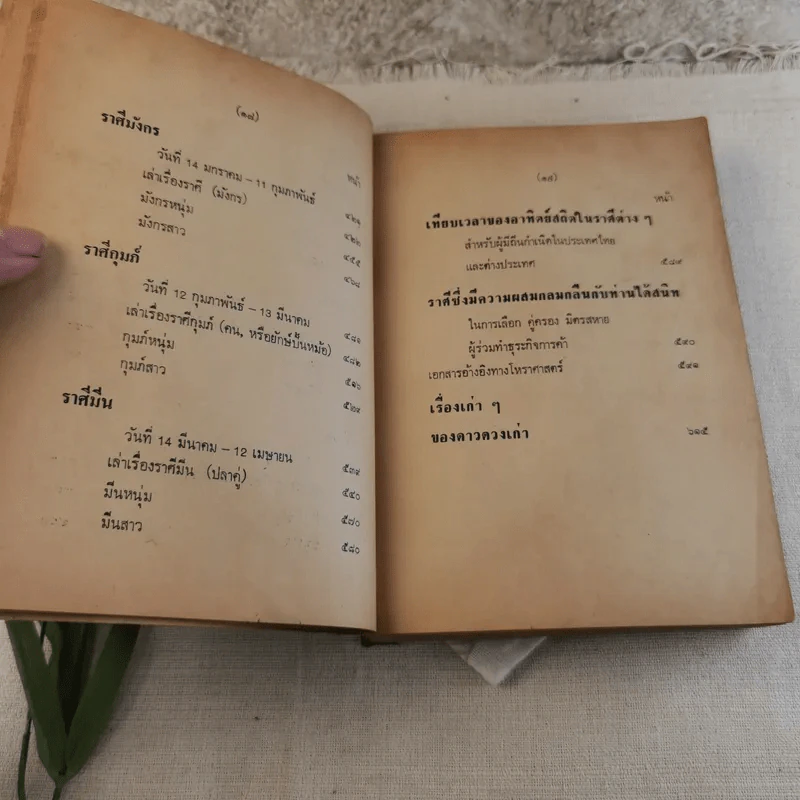 (๑๘)
ราศีมังกร
หน้า
วันที่ 14 มกราคม – 11 กุมภาพันธ์ ๔๒๑
เล่าเรื่องราศี (มังกร) ๔๒๒
มังกรหนุ่ม ๔๕๕
มังกรสาว ๔๖๘
ราศีกุมภ์
วันที่ 12 กุมภาพันธ์ – 13 มีนาคม ๔๘๑
เล่าเรื่องราศีกุมภ์ (คน, หรือยักษ์ปั้นหม้อ) ๔๘๒
กุมภ์หนุ่ม ๕๑๖
กุมภ์สาว ๕๒๙
ราศีมีน
วันที่ 14 มีนาคม – 12 เมษายน ๕๓๙
เล่าเรื่องราศีมีน (ปลาคู่) ๕๔๐
มีนหนุ่ม ๕๗๐
มีนสาว ๕๘๐
(๑๙)
หน้า
เทียบเวลาของอาทิตย์สถิตในราศีต่าง ๆ
สำหรับผู้มีถิ่นกำเนิดในประเทศไทย
และต่างประเทศ ๕๘๙
ราศีซึ่งมีความผสมกลมกลืนกับท่านได้สนิท
ในการเลือก คู่ครอง มิตรสหาย
ผู้ร่วมทำธุระกิจการค้า ๕๙๐
เอกสารอ้างอิงทางโหราศาสตร์ ๕๙๑
เรื่องเก่า ๆ
ของดาวดวงเก่า ๖๑๕